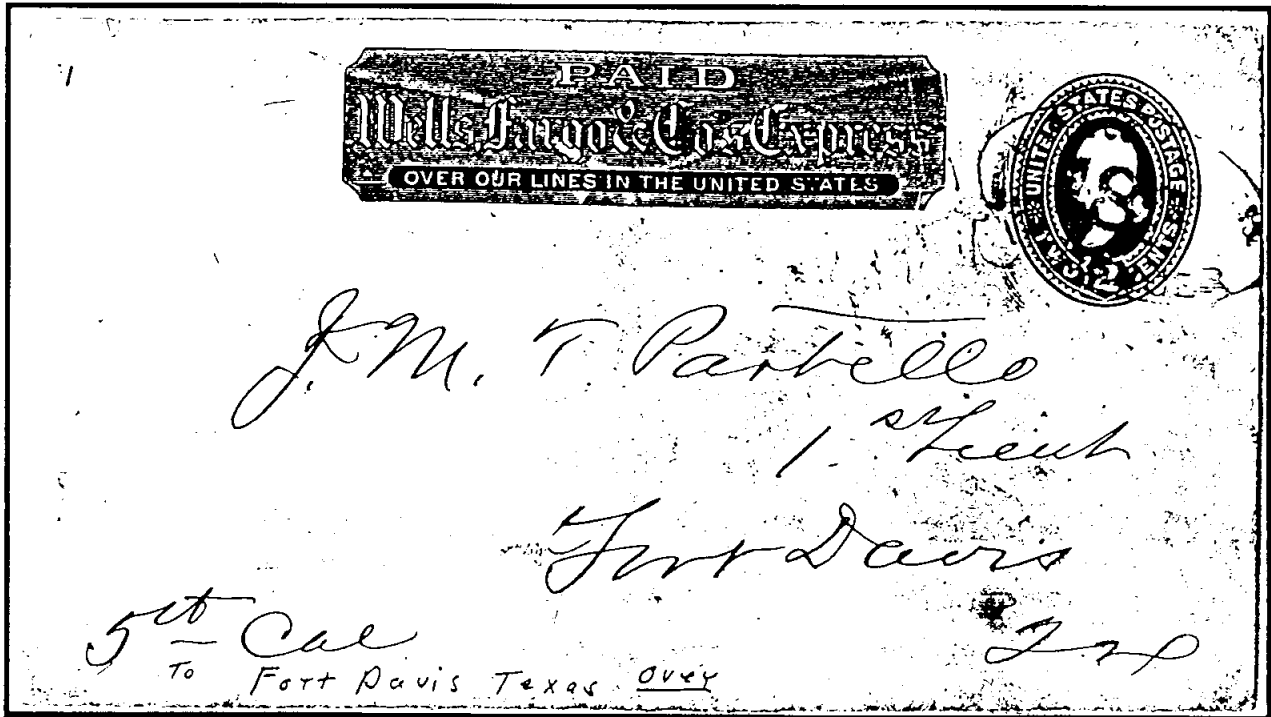 PAID
Wells, Fargo & Co's Express
OVER OUR LINES IN THE UNITED STATES
UNITED STATES POSTAGE
TWO CENTS
2
J. M. T Partello
1st Lieut
Fort Davis
Tex
5ct Cal
To Fort Davis Texas over